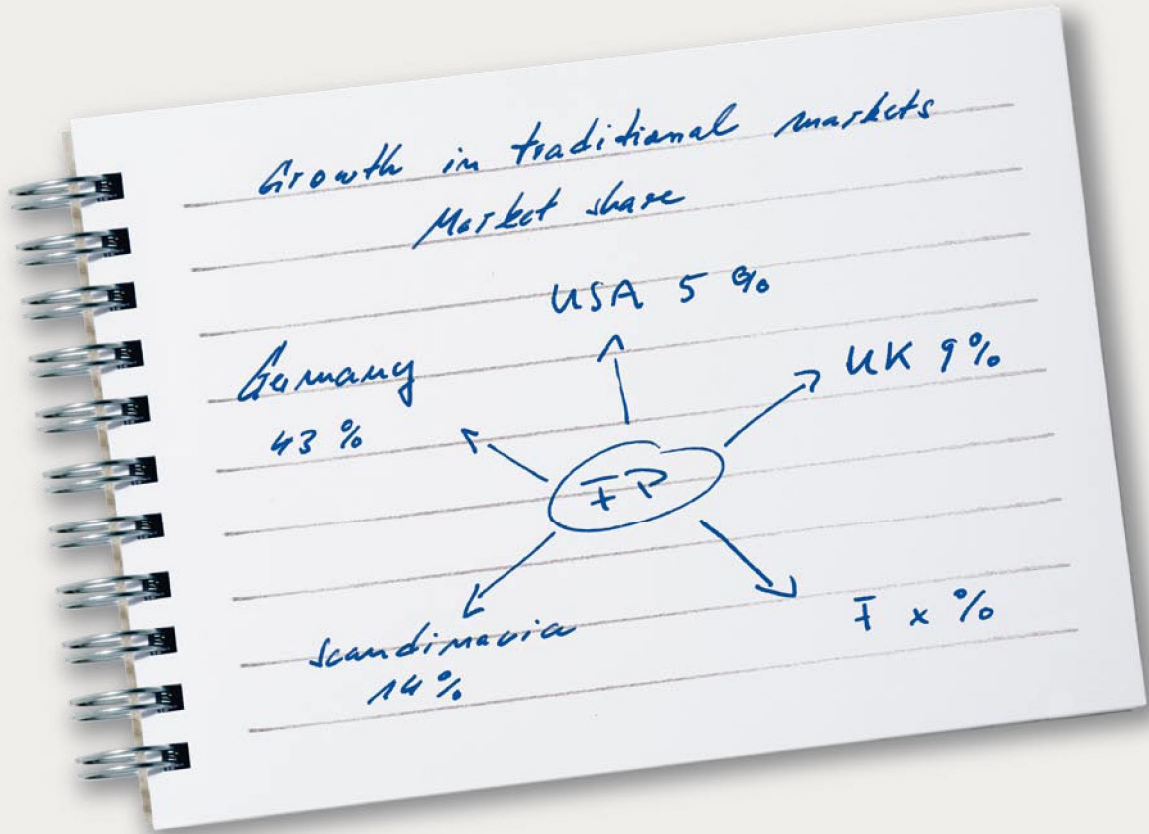 Growth in traditional markets
Market share
USA 5 %
UK 9%
Germany
43 %
FP
F x %
Scandinavia
14%